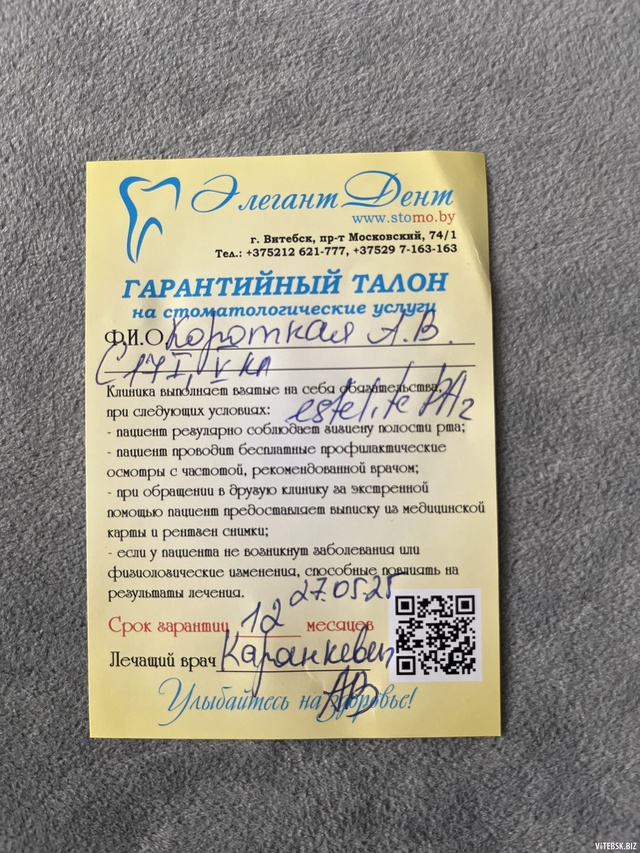 Элегант Дент
www.stomo.by
г. Витебск, пр-т Московский, 74/1
Тел.: +375212 621-777, +37529 7-163-163
ГАРАНТИЙНЫЙ ТАЛОН
на стоматологические услуги
Ф.И.О. Короткая А.В.
C 17 I, V кл
Клиника выполняет взятые на себя обязательства,
при следующих условиях:
estelite A2
- пациент регулярно соблюдает гигиену полости рта;
- пациент проводит бесплатные профилактические
осмотры с частотой, рекомендованной врачом;
- при обращении в другую клинику за экстренной
помощью пациент предоставляет выписку из медицинской
карты и рентген снимки;
- если у пациента не возникнут заболевания или
физиологические изменения, способные повлиять на
результаты лечения.
27.05.25
Срок гарантии 12 месяцев
Лечащий врач Каранкевич
АВ
Улыбайтесь на здоровье!
ViTEBSK.BIZ